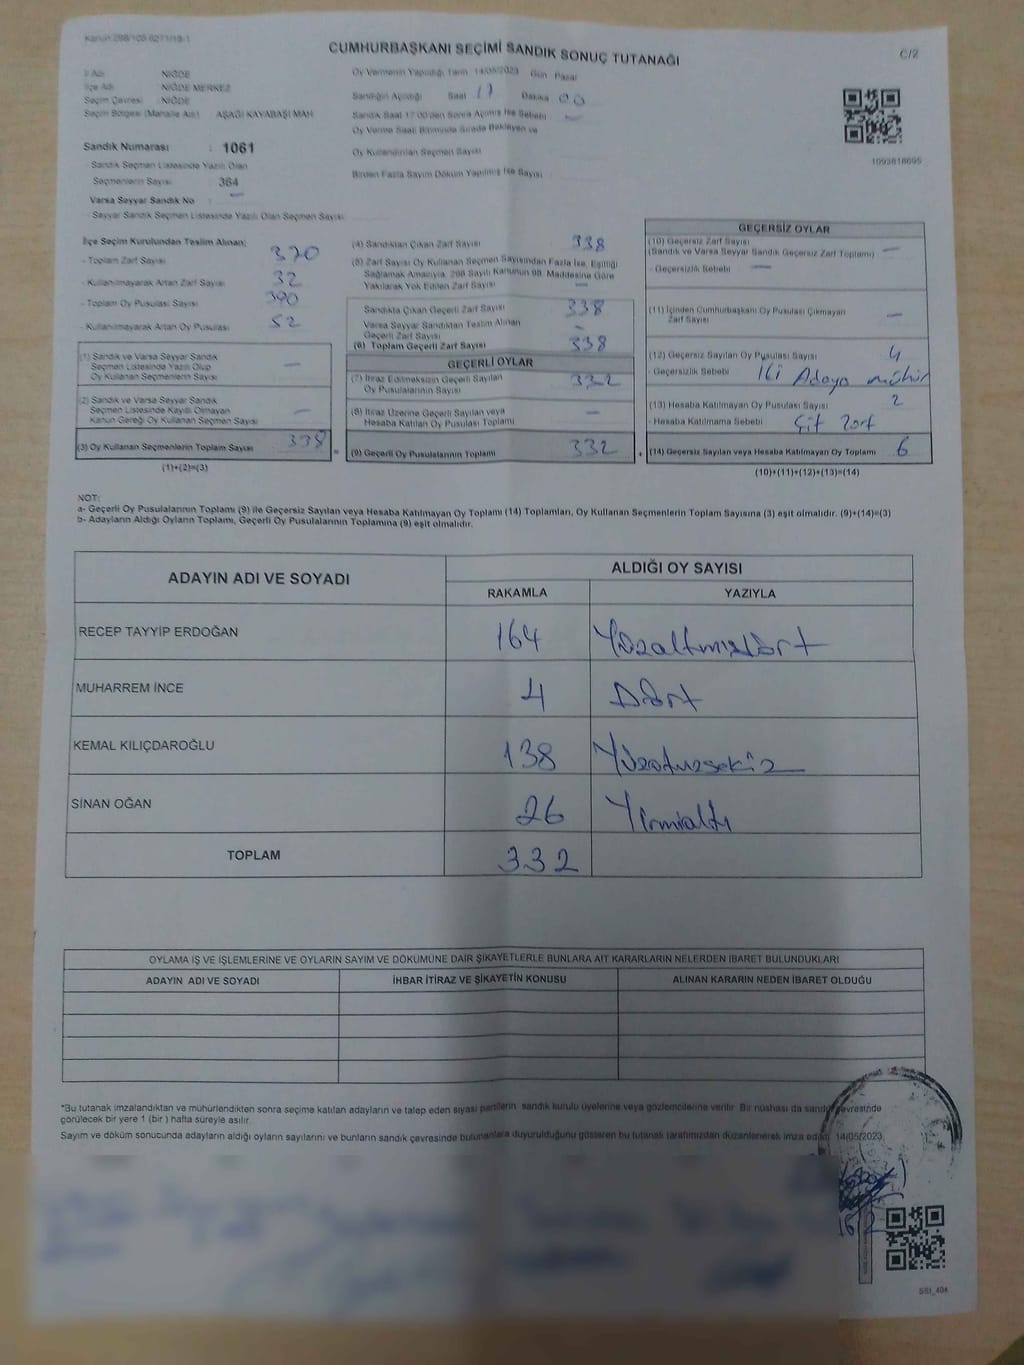 Kanun:298/105-6271/19-1
CUMHURBAŞKANI SEÇİMİ SANDIK SONUÇ TUTANAĞI
C/2
İl Adı : NİĞDE
İlçe Adı : NİĞDE MERKEZ
Seçim Çevresi : NİĞDE
Seçim Bölgesi (Mahalle Adı) AŞAĞI KAYABAŞI MAH
Sandık Numarası : 1061
Sandık Seçmen Listesinde Yazılı Olan
Seçmenlerin Sayısı 364
Varsa Seyyar Sandık No : —
- Seyyar Sandık Seçmen Listesinde Yazılı Olan Seçmen Sayısı
Oy Vermenin Yapıldığı Tarih 14/05/2023 Gün Pazar
Sandığın Açıldığı Saat 17 Dakika 00
Sandık Saat 17:00'den Sonra Açılmış İse Sebebi —
Oy Verme Saati Bitiminde Sırada Bekleyen ve
Oy Kullandırılan Seçmen Sayısı
Birden Fazla Sayım Döküm Yapılmış İse Sayısı
1093818695
İlçe Seçim Kurulundan Teslim Alınan;
- Toplam Zarf Sayısı 370
- Kullanılmayarak Artan Zarf Sayısı 32
- Toplam Oy Pusulası Sayısı 390
- Kullanılmayarak Artan Oy Pusulası 52
(1) Sandık ve Varsa Seyyar Sandık
Seçmen Listesinde Yazılı Olup
Oy Kullanan Seçmenlerin Sayısı —
(2) Sandık ve Varsa Seyyar Sandık
Seçmen Listesinde Kayıtlı Olmayan
Kanun Gereği Oy Kullanan Seçmen Sayısı —
(3) Oy Kullanan Seçmenlerin Toplam Sayısı 338
(1)+(2)=(3)
(4) Sandıktan Çıkan Zarf Sayısı 338
(5) Zarf Sayısı Oy Kullanan Seçmen Sayısından Fazla İse, Eşitliği
Sağlamak Amacıyla, 298 Sayılı Kanunun 98. Maddesine Göre
Yakılarak Yok Edilen Zarf Sayısı —
Sandıkta Çıkan Geçerli Zarf Sayısı 338
Varsa Seyyar Sandıktan Teslim Alınan
Geçerli Zarf Sayısı —
(6) Toplam Geçerli Zarf Sayısı 338
GEÇERLİ OYLAR
(7) İtiraz Edilmeksizin Geçerli Sayılan
Oy Pusulalarının Sayısı 332
(8) İtiraz Üzerine Geçerli Sayılan veya
Hesaba Katılan Oy Pusulası Toplamı —
=
(9) Geçerli Oy Pusulalarının Toplamı 332
+
GEÇERSİZ OYLAR
(10) Geçersiz Zarf Sayısı
(Sandık ve Varsa Seyyar Sandık Geçersiz Zarf Toplamı) —
- Geçersizlik Sebebi —
(11) İçinden Cumhurbaşkanı Oy Pusulası Çıkmayan
Zarf Sayısı —
(12) Geçersiz Sayılan Oy Pusulası Sayısı 4
- Geçersizlik Sebebi İki Adaya mühür
(13) Hesaba Katılmayan Oy Pusulası Sayısı 2
- Hesaba Katılmama Sebebi Çift Zarf
(14) Geçersiz Sayılan veya Hesaba Katılmayan Oy Toplamı 6
(10)+(11)+(12)+(13)=(14)
NOT:
a- Geçerli Oy Pusulalarının Toplamı (9) ile Geçersiz Sayılan veya Hesaba Katılmayan Oy Toplamı (14) Toplamları, Oy Kullanan Seçmenlerin Toplam Sayısına (3) eşit olmalıdır. (9)+(14)=(3)
b- Adayların Aldığı Oyların Toplamı, Geçerli Oy Pusulalarının Toplamına (9) eşit olmalıdır.
ADAYIN ADI VE SOYADI
ALDIĞI OY SAYISI
RAKAMLA YAZIYLA
RECEP TAYYİP ERDOĞAN 164 Yüzaltmışdört
MUHARREM İNCE 4 Dört
KEMAL KILIÇDAROĞLU 138 Yüzotuzsekiz
SİNAN OĞAN 26 Yirmialtı
TOPLAM 332
OYLAMA İŞ VE İŞLEMLERİNE VE OYLARIN SAYIM VE DÖKÜMÜNE DAİR ŞİKAYETLERLE BUNLARA AİT KARARLARIN NELERDEN İBARET BULUNDUKLARI
ADAYIN ADI VE SOYADI İHBAR İTİRAZ VE ŞİKAYETİN KONUSU ALINAN KARARIN NEDEN İBARET OLDUĞU
*Bu tutanak imzalandıktan ve mühürlendikten sonra seçime katılan adayların ve talep eden siyasi partilerin sandık kurulu üyelerine veya gözlemcilerine verilir. Bir nüshası da sandık çevresinde
görülecek bir yere 1 (bir) hafta süreyle asılır.
Sayım ve döküm sonucunda adayların aldığı oyların sayılarını ve bunların sandık çevresinde bulunanlara duyurulduğunu gösteren bu tutanak tarafımızdan düzenlenerek imza edildi. 14/05/2023
SSI_404